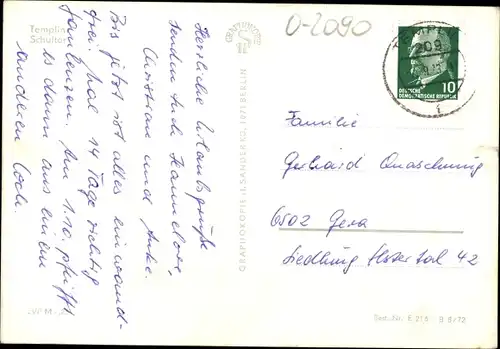 Templin
Schultor
Herzliche Urlaubsgrüße
senden Euch Hannelore,
Christian und Anke.
Bis jetzt ist alles einwand-
frei. Mal 14 Tage richtig
faulenzen. Am 1.10. pfeift
es dann aus einem
anderen Loch.
GRAPHOKOPIE · H. SANDER KG, 1071 BERLIN
0-2090
TEMPLIN
209
DEUTSCHE
DEMOKRATISCHE REPUBLIK
10
Familie
Gerhard Quaschning
6502 Gera
Siedlung Elstertal 42
Best.-Nr. E 215 B 8/72